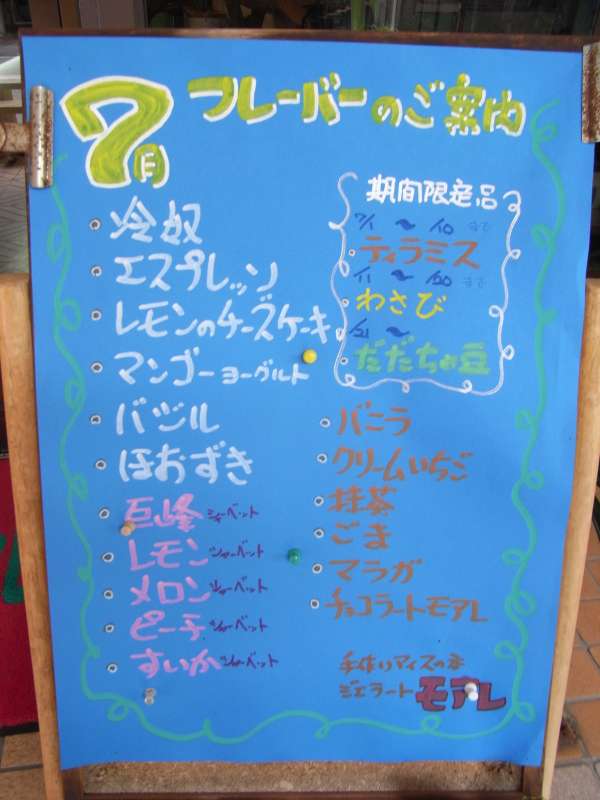 7月 フレーバーのご案内
冷奴
エスプレッソ
レモンのチーズケーキ
マンゴーヨーグルト
バジル
ほおずき
巨峰シャーベット
レモンシャーベット
メロンシャーベット
ピーチシャーベット
すいかシャーベット
期間限定品
7/1 〜 10まで
ティラミス
11 〜 20まで
わさび
21 〜
だだちゃ豆
バニラ
クリームいちご
抹茶
ごま
マラガ
チョコラートモアレ
手作りアイスの店
ジェラート モアレ